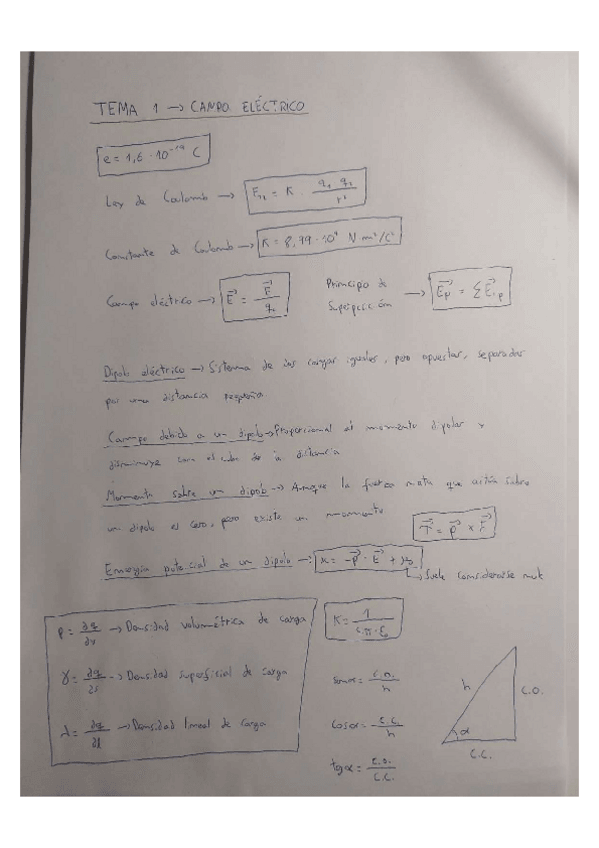 TEMA 1 → CAMPO ELÉCTRICO
e = 1,6 · 10⁻¹⁹ C
Ley de Coulomb → F₁₂ = K · q₁ q₂ / r²
Constante de Coulomb → K = 8,99 · 10⁹ N·m²/C²
Campo eléctrico → E⃗ = F⃗ / q₀
Principio de Superposición → E⃗p = Σ E⃗ᵢp
Dipolo eléctrico → Sistema de dos cargas iguales, pero opuestas, separadas
por una distancia pequeña
Campo debido a un dipolo → Proporcional al momento dipolar y
disminuye con el cubo de la distancia
Momento sobre un dipolo → Aunque la fuerza neta que actúa sobre
un dipolo es cero, pero existe un momento
τ⃗ = p⃗ × E⃗
Energía potencial de un dipolo → u = -p⃗ · E⃗ + u₀
↳ Suele considerarse
ρ = ∂q/∂v → Densidad volumétrica de carga
K = 1 / 4·π·ε₀
γ = ∂q/∂s → Densidad superficial de carga
λ = ∂q/∂l → Densidad lineal de carga
senα = C.O. / h
cosα = C.C. / h
tgα = C.O. / C.C.
h
C.O.
α
C.C.